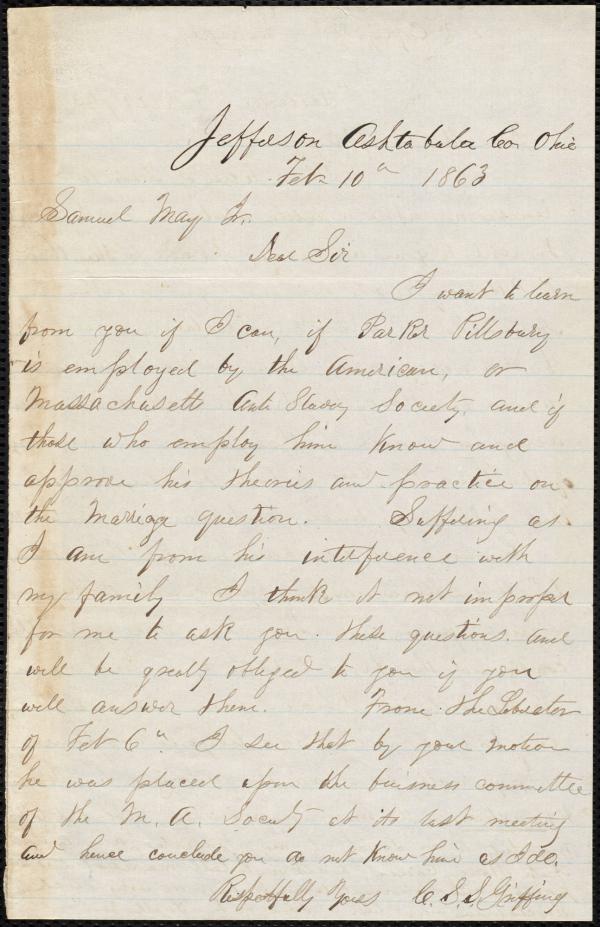 Jefferson Ashtabula Co. Ohio
Feb 10th 1863
Samuel May Jr.
Dear Sir
I want to learn
from you if I can, if Parker Pillsbury
is employed by the American, or
Massachusetts Anti Slavery Society, and if
those who employ him know and
approve his theories and practice on
the Marriage question. Suffering as
I am from his interference with
my family I think it not improper
for me to ask you these questions. and
will be greatly obliged to you if you
will answer them. From the Liberator
of Feb 6th I see that by your motion
he was placed upon the business committee
of the M. A. Society at its last meeting
and hence conclude you do not know him as I do.
Respectfully Yours C. S. S. Griffing